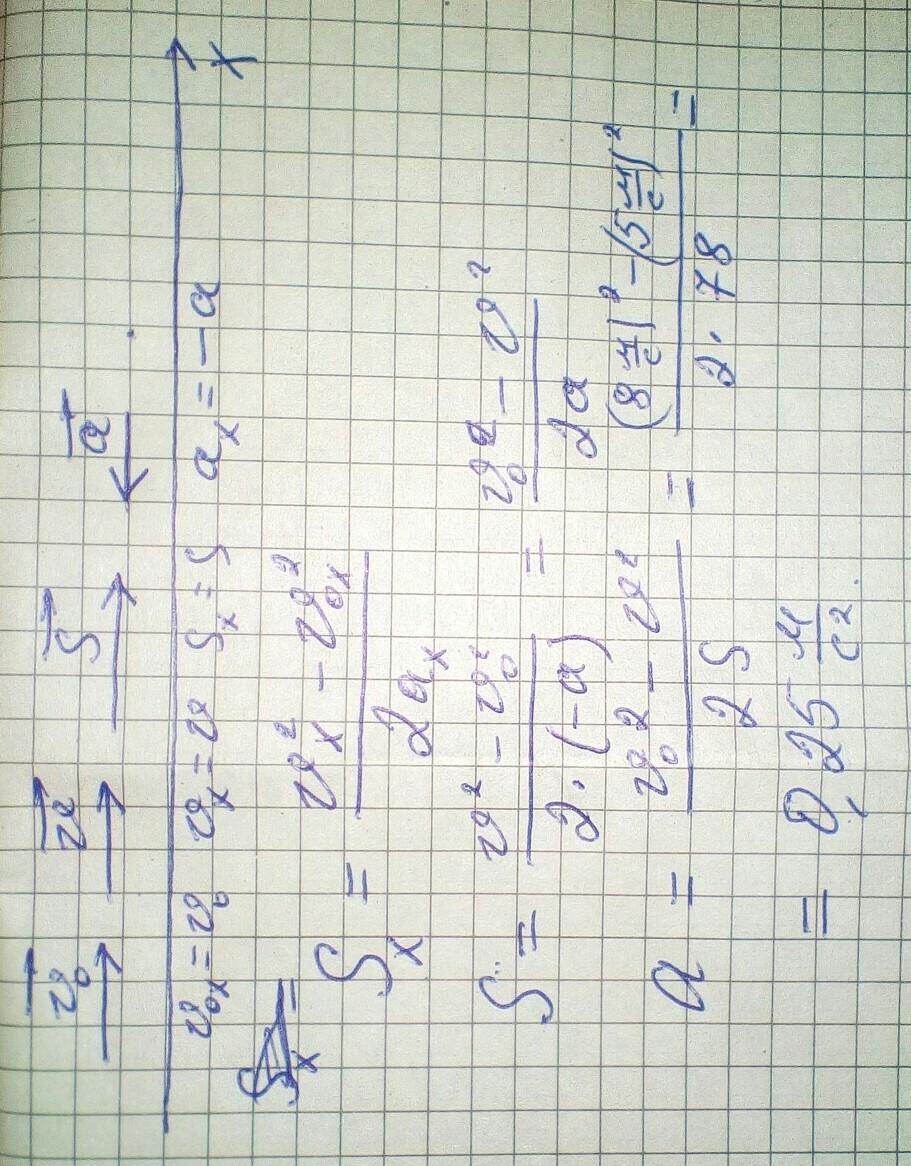 v⃗₀ v⃗ S⃗ a⃗
v₀ₓ = v₀ vₓ = v Sₓ = S aₓ = −a x
Sₓ = (vₓ² − v₀ₓ²) / 2aₓ
S = (v² − v₀²) / 2·(−a) = (v₀² − v²) / 2a
a = (v₀² − v²) / 2S = ((8 м/с)² − (5 м/с)²) / 2·78 =
= 0,25 м/с².